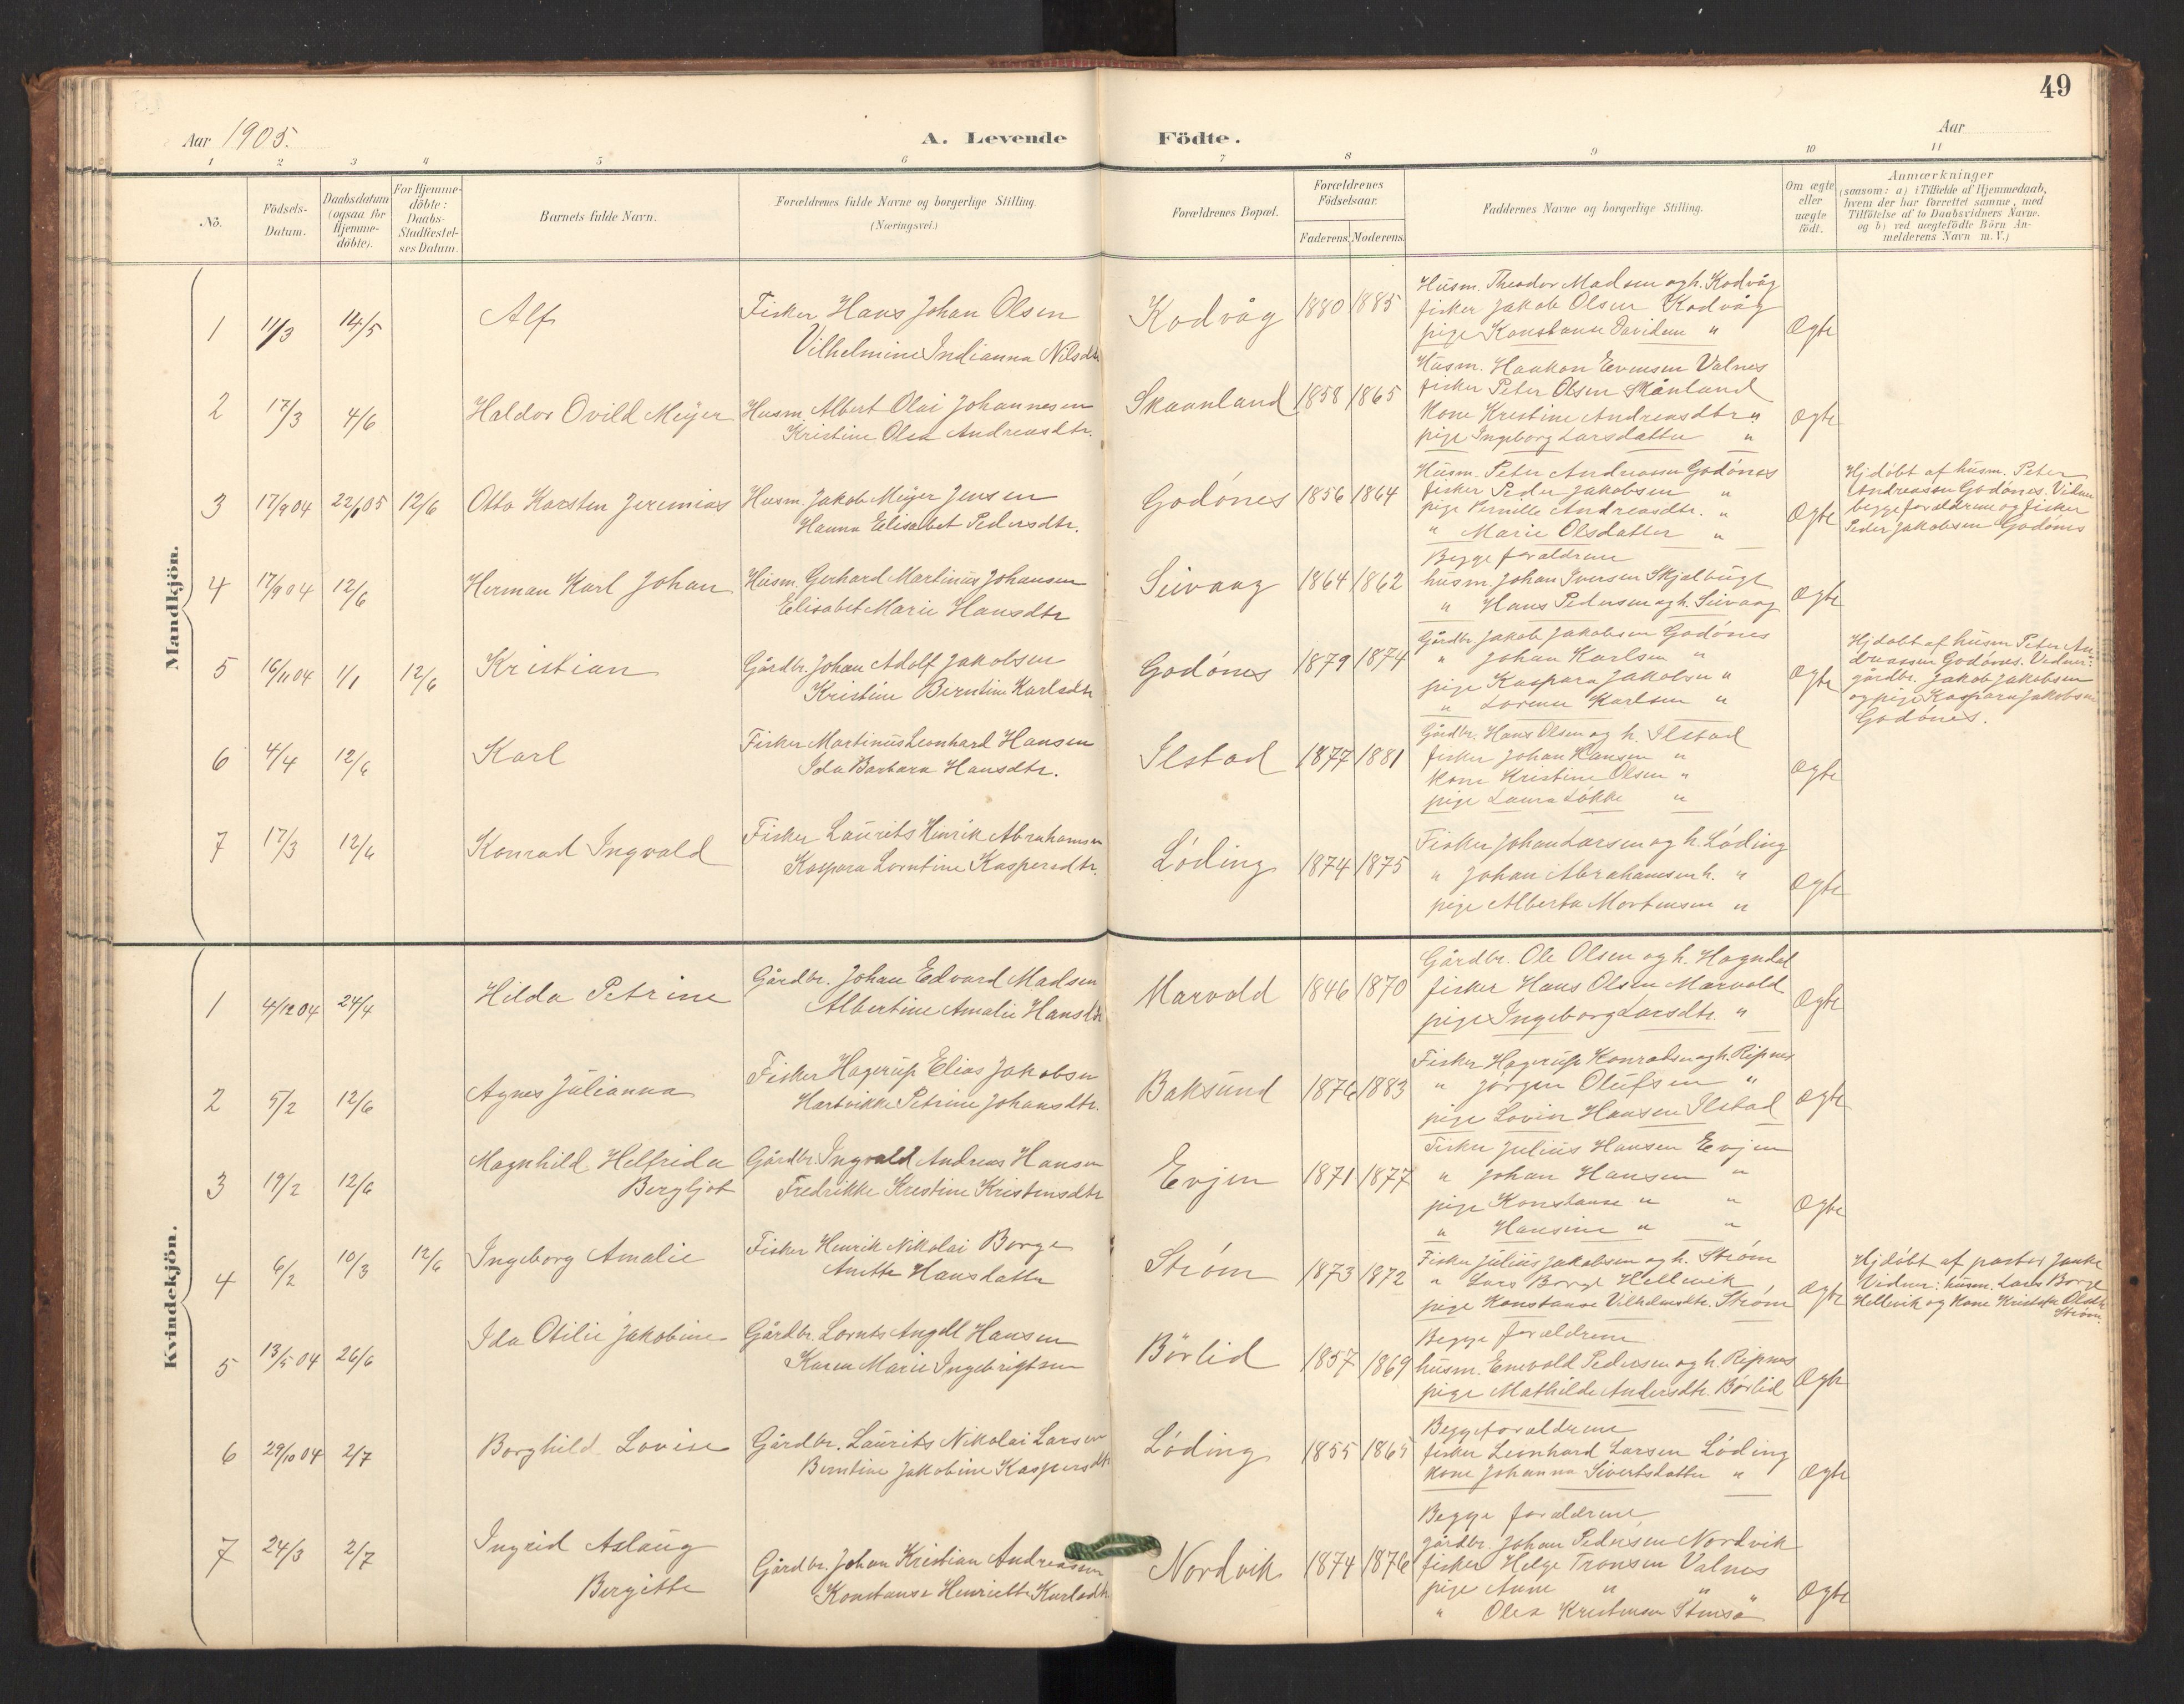 49
Aar 1905.
A. Levende Födte.
Aar
1 2 3 4 5 6 7 8 9 10 11
No.
Födsels-Datum.
Daabsdatum (ogsaa for Hjemme-döbte).
For Hjemme-döbte: Daabs-Stadfæstel-ses Datum.
Barnets fulde Navn.
Forældrenes fulde Navne og borgerlige Stilling.
(Næringsvei.)
Forældrenes Bopæl.
Forældrenes Födselsaar.
Faderens. Moderens.
Faddernes Navne og borgerlige Stilling.
Om ægte eller uægte födt.
Anmærkninger
(saasom: a) i Tilfælde af Hjemmedaab,
hvem der har forrettet samme, med
Tilföielse af to Daabsvidners Navne.
og b) ved uægtefödte Börn An-
melderens Navn m. V.)
Mandkjön.
1 11/3 14/5 Alf
Fisker Hans Johan Olsen
Vilhelmine Indianna Nilsdtr
Kodvåg 1880 1885
Husm. Theodor Madsen og h. Kodvåg
fisker Jakob Olsen Kodvåg
pige Konstanse Davidsen "
Ægte
2 17/3 4/6 Haldor Ovild Meyer
Husm. Albert Olai Johannesen
Kristine Olea Andreasdtr.
Skaanland 1858 1865
Husm. Haakon Evensen Valnes
fisker Peter Olsen Skånland
Kone Kristine Andreasdtr. "
pige Ingeborg Larsdatter "
Ægte
3 17/9 04 22/1 05 12/6 Otto Karsten Jeremias
Husm. Jakob Meyer Jensen
Hanna Elisabet Pedersdtr.
Godönes 1856 1864
Husm. Peter Andreassen Godönes
fisker Peder Jakobsen "
pige Pernille Andreasdtr. "
" Marie Olsdatter "
Ægte
Hjdöbt af husm. Peter
Andreassen Godönes. Vidner
begge forældrene og fisker
Peder Jakobsen Godönes
4 17/9 04 12/6 Herman Karl Johan
Husm. Gerhard Martinus Johansen
Elisabet Marie Hansdtr
Seivaag 1864 1862
Begge forældrene
husm. Johan Iversen Skjelbugt
" Hans Pedersen og h. Seivaag
Ægte
5 16/11 04 1/1 12/6 Kristian
Gårdbr. Johan Adolf Jakobsen
Kristine Berntine Karlsdtr
Godönes 1879 1874
Gårdbr. Jakob Jakobsen Godönes
" Johan Karlsen "
pige Kaspara Jakobsen "
" Lorense Karlsen "
Ægte
Hjdöbt af husm Peter An-
dreassen Godönes. Vidner:
gårdbr. Jakob Jakobsen
og pige Kaspara Jakobsen
Godönes.
6 4/4 12/6 Karl
Fisker Martinus Leonhard Hansen
Ida Barbara Hansdtr.
Ilstad 1877 1881
Gårdbr. Hans Olsen og h. Ilstad
fisker Johan Hansen "
Kone Kristine Olsen "
pige Laura Løkke "
Ægte
7 17/3 12/6 Konrad Ingvald
Fisker Laurits Hinrik Abrahamsen
Kaspara Lorntine Kaspersdtr.
Löding 1874 1875
Fisker Johan Larsen og h. Löding
" Johan Abrahamsen h. "
pige Alberta Mortensen "
Ægte
Kvindekjön.
1 4/12 04 24/4 Hilda Petrine
Gårdbr. Johan Edvard Madsen
Albertine Amalie Hansdtr
Marvold 1846 1870
Gårdbr. Ole Olsen og h. Hogndal
fisker Hans Olsen Marvold
pige Ingeborg Larsdtr. "
Ægte
2 5/2 12/6 Agnes Julianna
Fisker Hagerup Elias Jakobsen
Hartvikke Petrine Johansdtr.
Baksund 1876 1883
Fisker Hagerup Konradsen og h. Ripnes
" Jörgen Olufsen "
pige Lovise Hansen Ilstad
Ægte
3 19/2 12/6 Magnhild Helfrida
Bergljot
Gårdbr. Ingvald Andreas Hansen
Fredrikke Kristine Kristensdtr
Evjen 1871 1877
Fisker Julius Hansen Evjen
" Johan Hansen "
pige Konstanse " "
" Hansine " "
Ægte
4 6/2 10/3 12/6 Ingeborg Amalie
Fisker Henrik Nikolai Borge
Anette Hansdatter
Ström 1873 1872
Fisker Julius Jakobsen og h. Ström
" Lars Borge Hellevik
pige Konstanse Vilhelmsdtr. Ström
Ægte
Hjdöbt af pastor
Vidner: husm. Lars Borge
Hellevik og Kone Olsdtr.
Ström.
5 13/5 04 26/6 Ida Otilie Jakobine
Gårdbr. Lornts Angell Hansen
Karen Marie Ingebrigtsen
Börlid 1857 1869
Begge forældrene
husm. Enevold Pedersen og h. Ripnes
pige Mathilde Andersdtr. Börlid
Ægte
6 29/10 04 2/7 Borghild Lovise
Gårdbr. Laurits Nikolai Larsen
Berntine Jakobine Kaspersdtr
Löding 1855 1865
Begge forældrene
fisker Leonhard Larsen Löding
Kone Johanna Sivertsdatter "
Ægte
7 24/3 2/7 Ingrid Aslaug
Bergitte
Gårdbr. Johan Kristian Andreassen
Konstanse Henriette Karlsdtr
Nordvik 1874 1876
Begge forældrene
gårdbr. Johan Pedersen Nordvik
fisker Helge Tronsen Valnes
pige Anne " "
" Olea Kristensen
Ægte